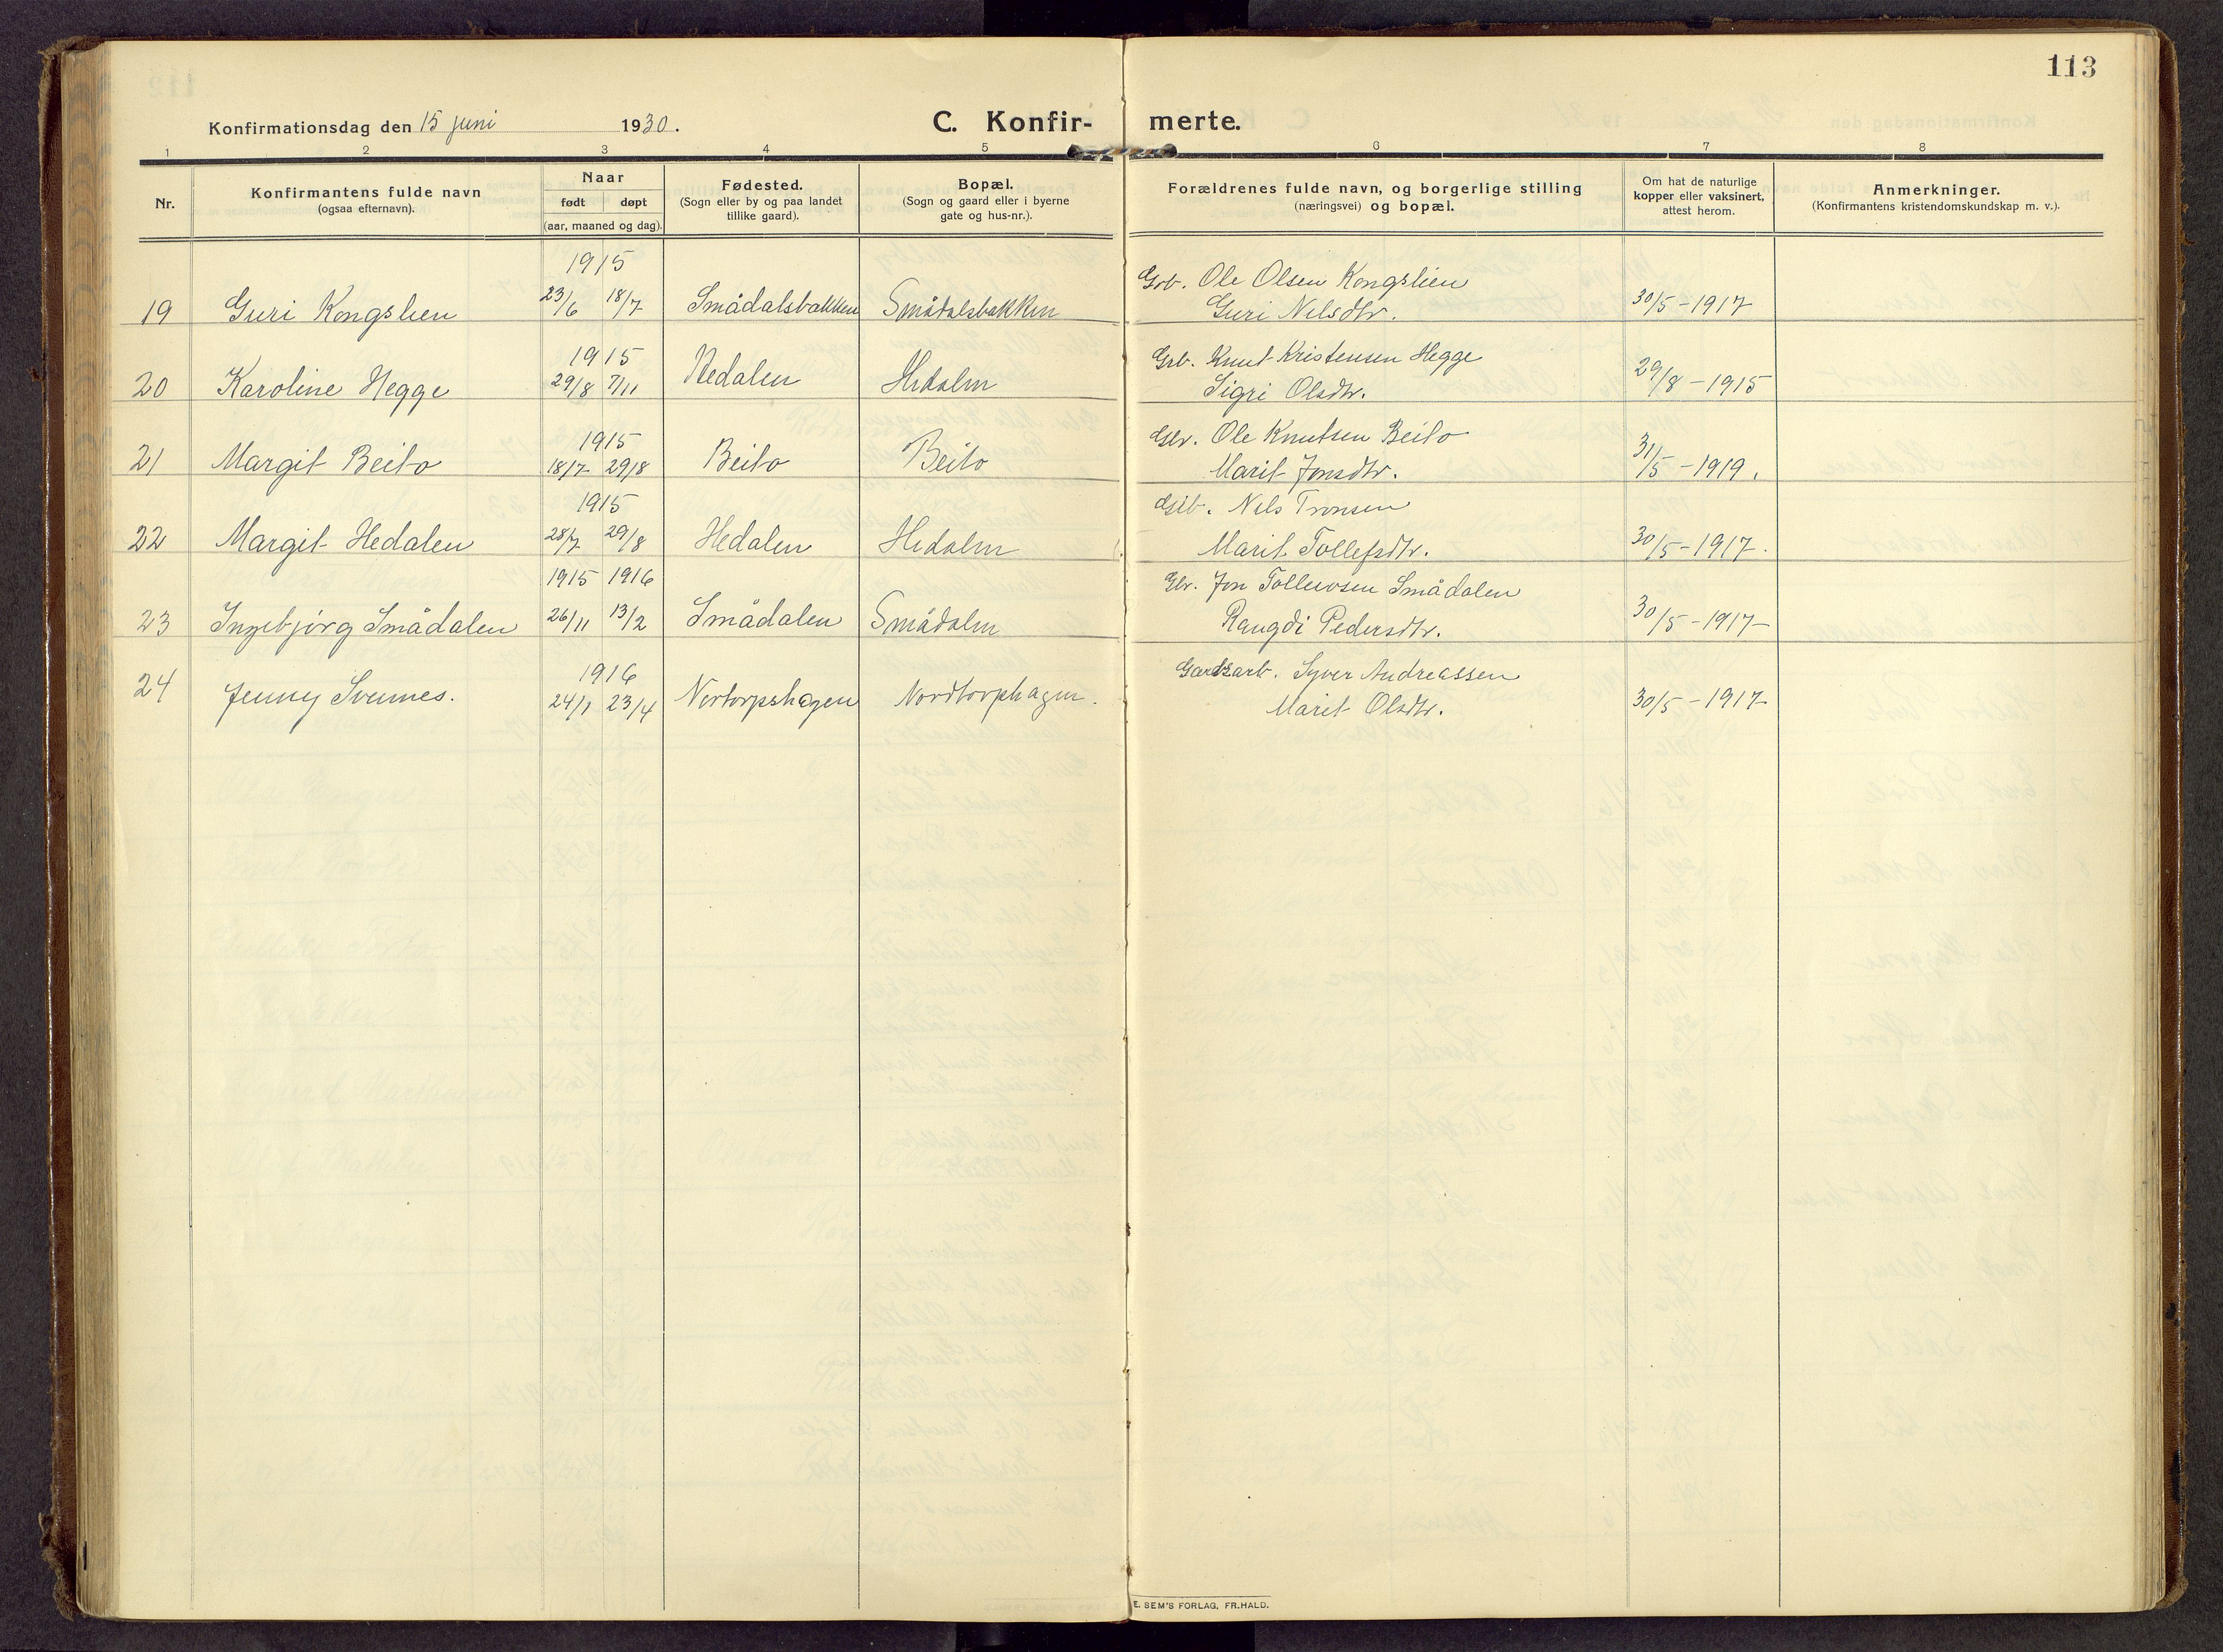 113
Konfirmationsdag den 15 juni 1930.
C. Konfir- merte.
1 2 3 4 5 6 7 8
Nr.
Konfirmantens fulde navn
(ogsaa efternavn).
Naar
født døpt
(aar, maaned og dag).
Fødested.
(Sogn eller by og paa landet
tillike gaard).
Bopæl.
(Sogn og gaard eller i byerne
gate og hus-nr.).
Forældrenes fulde navn, og borgerlige stilling
(næringsvei) og bopæl.
Om hat de naturlige
kopper eller vaksinert,
attest herom.
Anmerkninger.
(Konfirmantens kristendomskundskap m. v.).
1915
Grb. Ole Olsen Kongslien
19 Guri Kongslien 23/6 18/7 Smådalsbakken Smådalsbakken Guri Nilsdtr. 30/5-1917
1915
Grb. Knut Kristensen Hegge
20 Karoline Hegge 29/8 7/11 Hedalen Hedalen Sigri Olsdtr. 29/8-1915
1915
Gbr. Ole Knutsen Beito
21 Margit Beito 18/7 29/8 Beito Beito Marit Jonsdtr. 31/5-1919.
1915
Nils Tronsen
22 Margit Hedalen 28/7 29/8 Hedalen Hedalen Marit Tollefsdtr. 30/5-1917.
1915 1916
Gbr. Jon Tollevsen Smådalen
23 Ingebjørg Smådalen 26/11 13/2 Smådalen Smådalen Rangdi Pedersdtr. 30/5-1917-
1916
Gardsarb. Syver Andreassen
24 Jenny Svennes. 24/1 23/4 Nortorpshagen Nordtorphagen. Marit Olsdtr. 30/5-1917-
E. SEM'S FORLAG, FR.HALD.